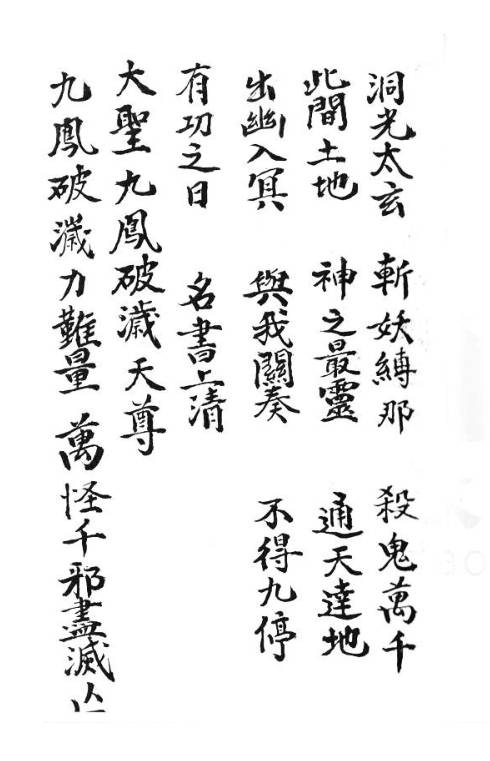 洞光太玄 斬妖縛那 殺鬼萬千
此間土地 神之最靈 通天達地
出幽入冥 與我關奏 不得九停
有功之日 名書上清
大聖九鳳破濊天尊
九鳳破濊力難量 萬怪千邪盡滅